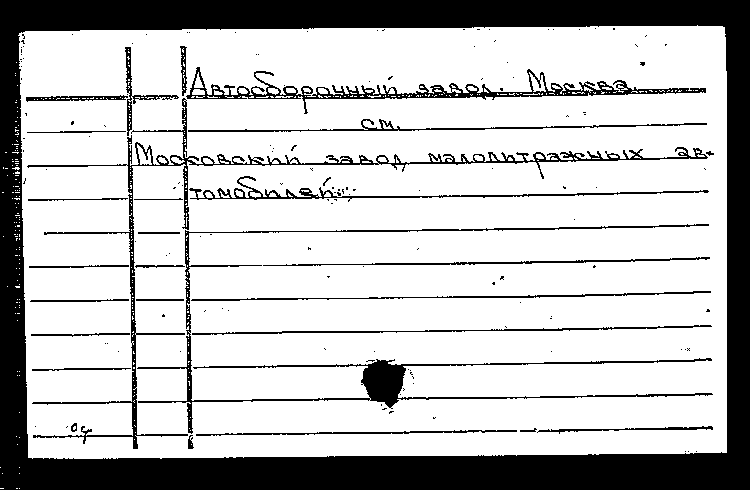 Автосборочный завод. Москва.
см.
Московский завод малолитражных ав-
томобилей